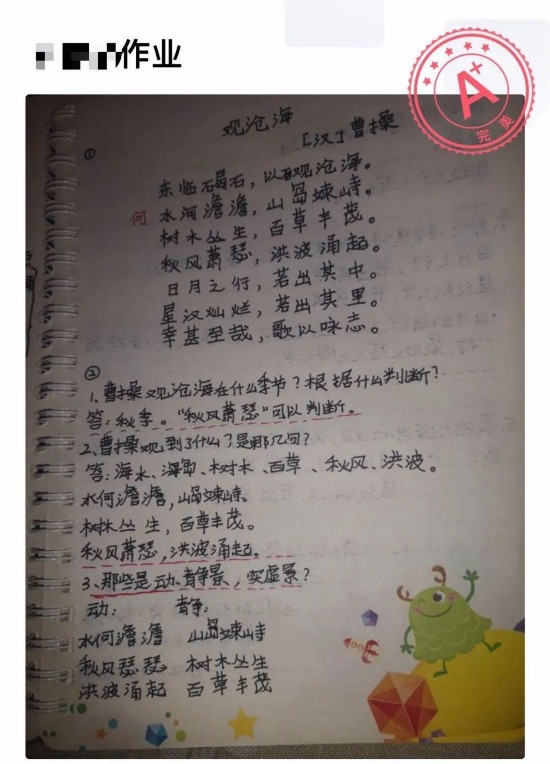 作业
A+
完美
观沧海
[汉]曹操
①
东临碣石，以观沧海。
何 水河澹澹，山岛竦峙。
树木丛生，百草丰茂。
秋风萧瑟，洪波涌起。
日月之行，若出其中。
星汉灿烂，若出其里。
幸甚至哉，歌以咏志。
②
1、曹操观沧海在什么季节？根据什么判断？
答：秋季。“秋风萧瑟”可以判断。
2、曹操观到了什么？是那几句？
答：海水、海岛、树木、百草、秋风、洪波。
水何澹澹，山岛竦峙。
树木丛生，百草丰茂。
秋风萧瑟，洪波涌起。
3、那些是动、静景，实虚景？
动： 静：
水何澹澹 山岛竦峙
秋风瑟瑟 树木丛生
洪波涌起 百草丰茂